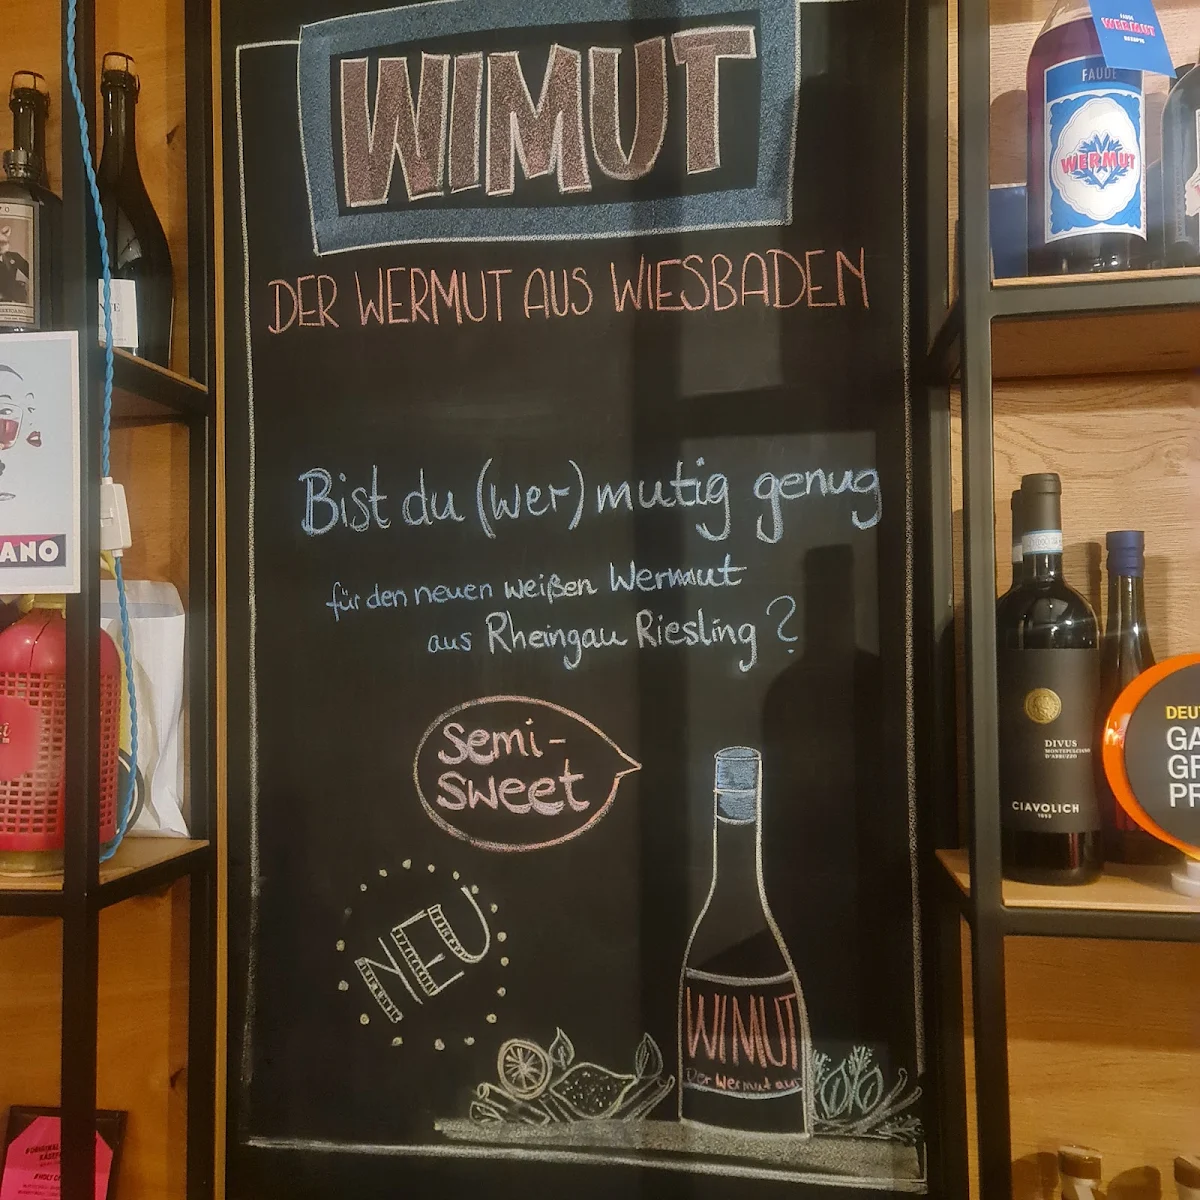 WIMUT
DER WERMUT AUS WIESBADEN
Bist du (wer) mutig genug
für den neuen weißen Wermut
aus Rheingau Riesling?
semi-
sweet
NEU
WIMUT
Der Wermut aus
FAUDE
WERMUT
REZEPTE
FAUDE
WERMUT
DIVUS
MONTEPULCIANO
D'ABRUZZO
CIAVOLICH
1853
DEUT
GA
GR
PR
ANO